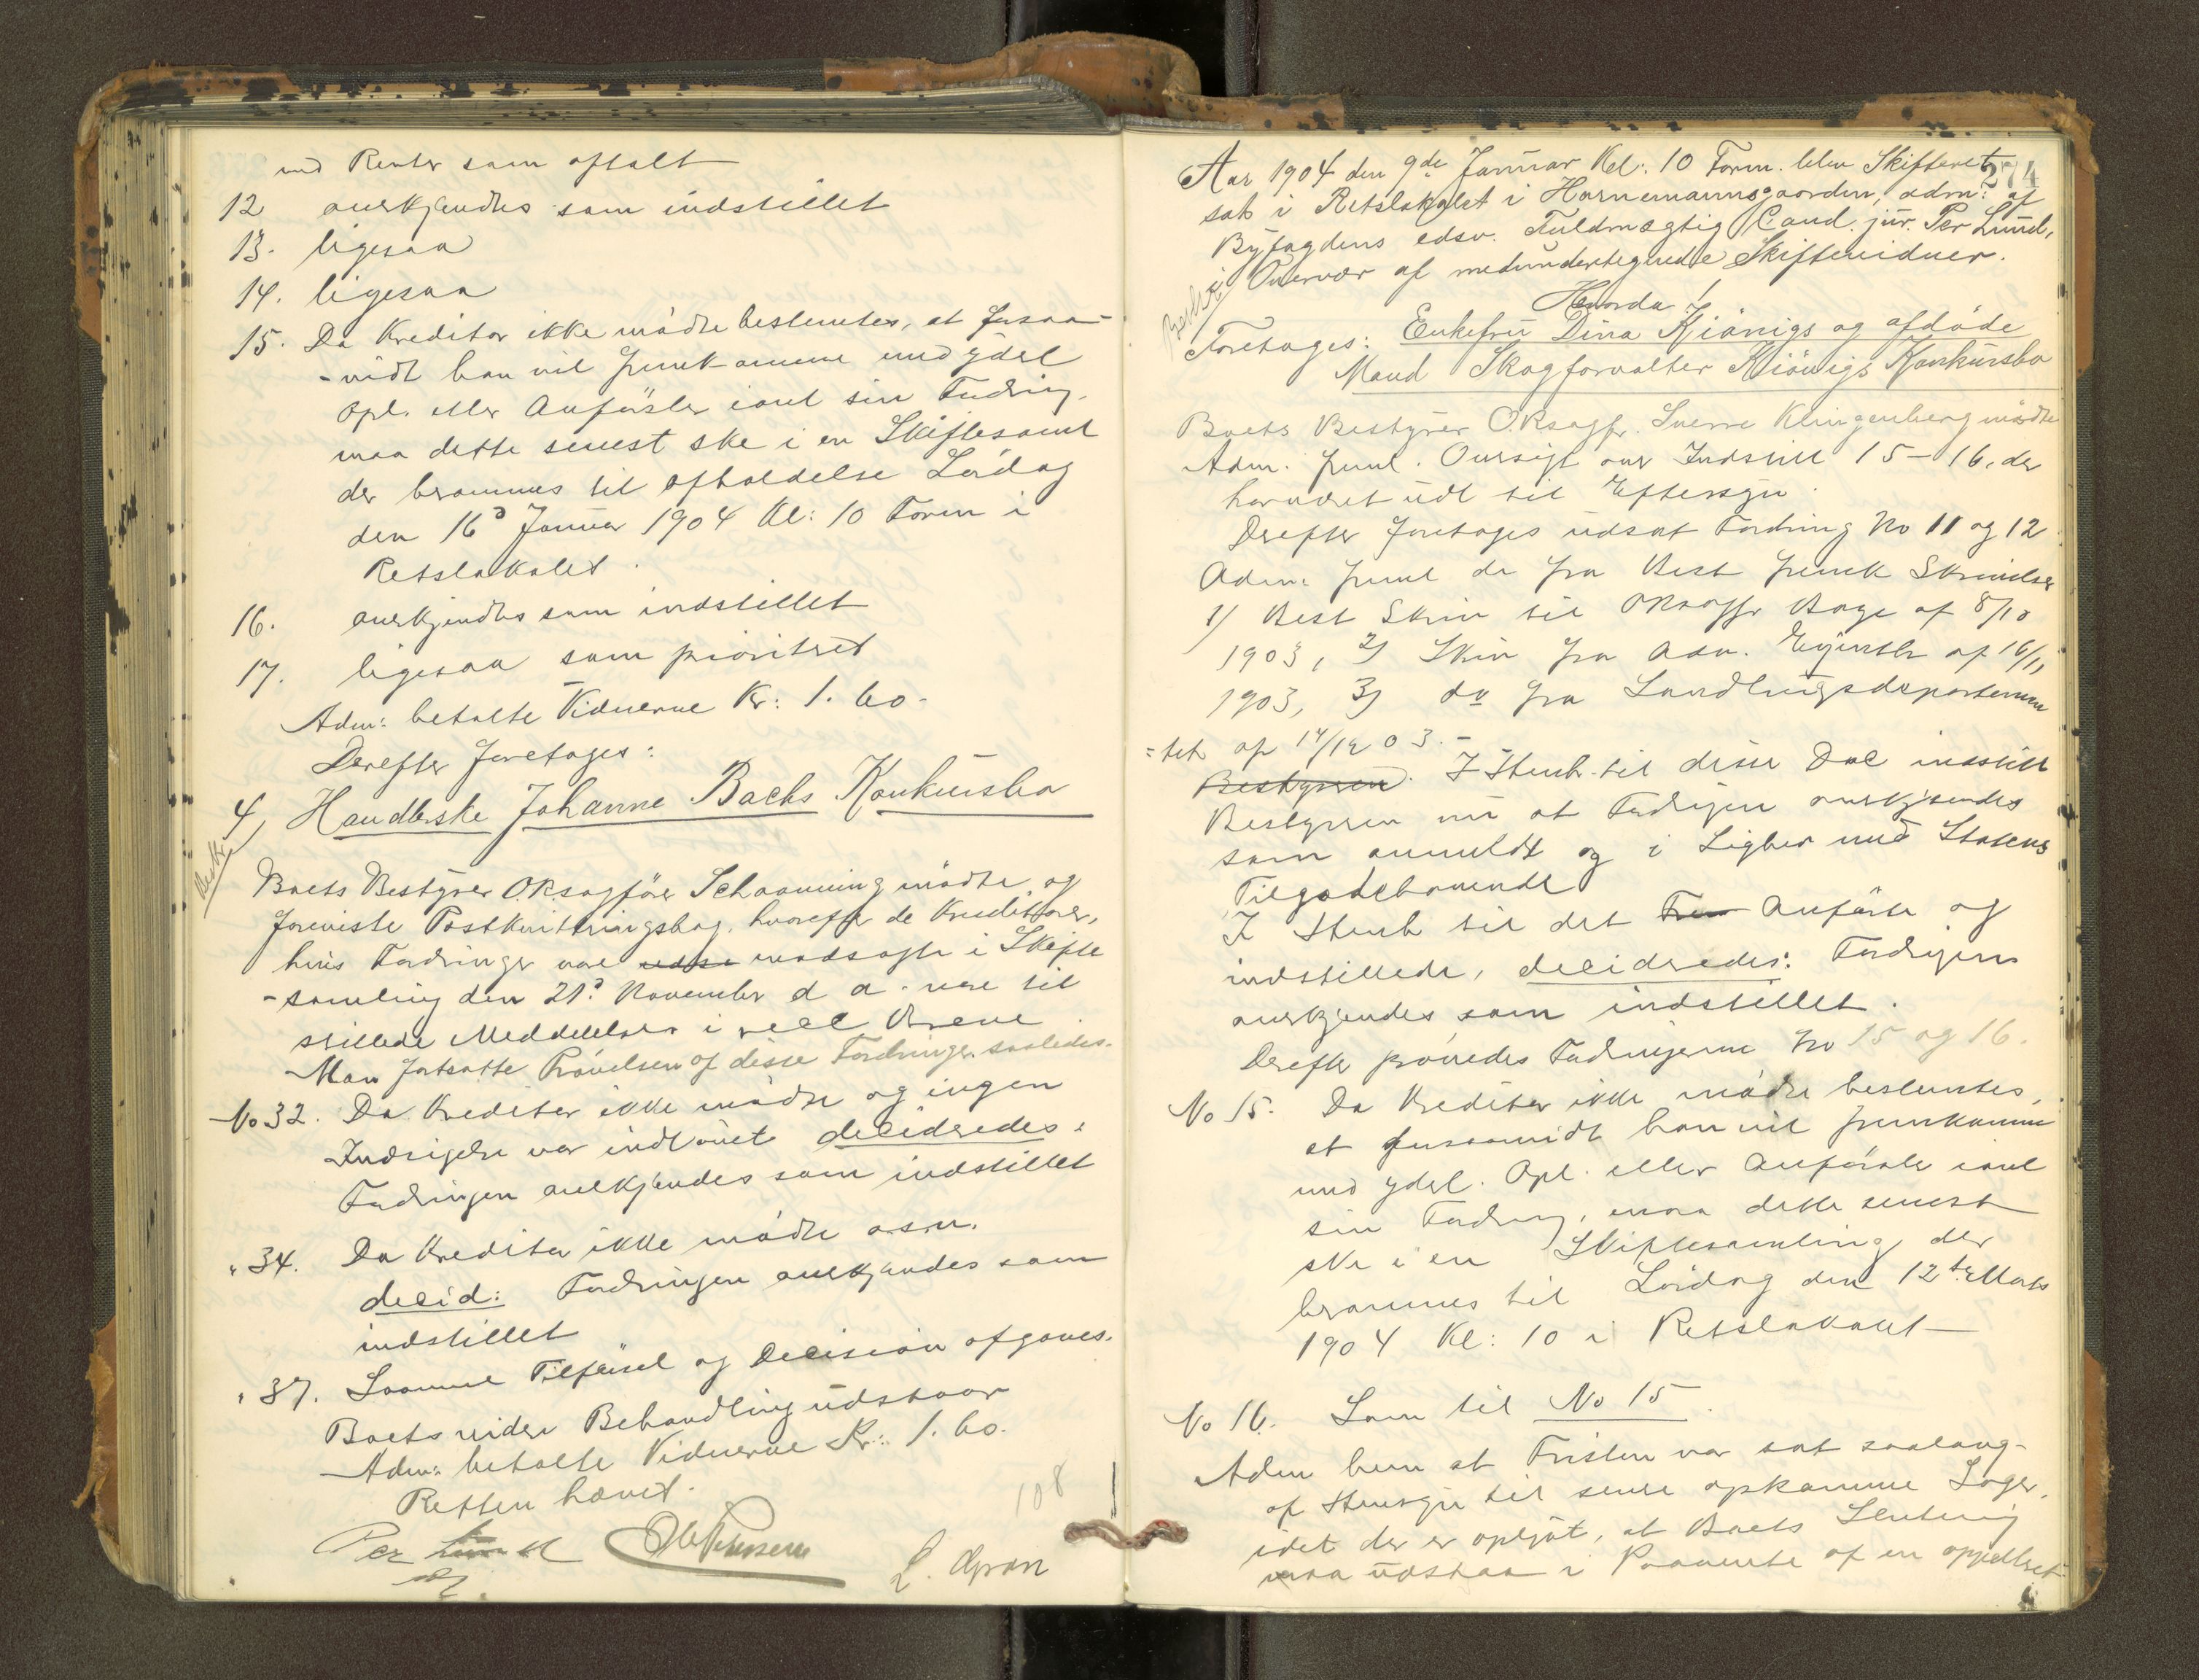 med Renter som aftalt
12 anerkjendtes som indstillet
13. ligesaa
14. ligesaa
15. Da Kreditor ikke mødte bestemtes, at forsaa-
-vidt han vil fremkomme med ydel
Opl. eller Anførsler ianl sin Fordring.
maa dette senest ske i en Skiftesaml
der berammes til afholdelse Lørdag
den 16d Januar 1904 Kl: 10 Form i
Retslokalet.
16. anerkjendtes som indstillet
17. ligesaa som prioritret
Adm: betalte Vidnerne Kr: 1.60.
Derefter foretages:
4, Handlerske Johanne Bachs Konkursbo
Boets Bestyrer O.R.sagfører Schaanning mødte og
foreviste Postkvitteringsbog, hvorefter de Kreditorer,
hvis Fordringer var modsagte i Skifte
-samling den 21d November d a. var til
stillede Meddelelser i recc Breve
Man fortsatte Prøvelsen af disse Fordringer saaledes.
No 32. Da Kreditor ikke mødte og ingen
Indsigelse var indløbet decideredes:
Fordringen anerkjendes som indstillet
" 34. Da Kreditor ikke mødte osv.
decid: Fordringen anerkjendes som
indstillet
" 37. Samme Tilførsel og Decision afgaves.
Boets videre Behandling udstaar
Adm: betalte Vidnerne Kr: 1.60.
Retten hævet.
108
Per Lund
L. Gran
274
Aar 1904 den 9de Januar Kl: 10 Form. blev Skifteret
sat i Retslokalet i Hornemannsgaarden, adm: af
Byfogdens edsv. Fuldmægtig Cand. jur. Per Lund,
i Overvær af medundertegnede Skiftevidner.
Hvorda!
Foretoges: Enkefru Dina Kiönigs og afdøde
Mand Skogforvalter Kiönigs Konkursbo
Boets Bestyrer O.Rsagfr. Sverre Klingenberg mødte
Adm. freml. Oversigt over Indstill 15-16, der
har været udl til Eftersyn.
Derefter foretages udsat Fordring No 11 og 12
Adm. freml de fra Best fremk Skrivelser
1) Best Skriv til ORsagfr Bage af 8/10
1903, 2) Skriv fra Adv. af 16/11
1903, 3) do fra Landbrugsdepartemen
=tet af 14/12 03.-
Bestyreren. I Henh. til disse Dok indstill
Bestyreren nu at Fordringen anerkjendes
som anmeldt og i Lighed med Statens
Tilgodehavende
I Henh til det Anførte og
indstillede, decideredes: Fordringen
anerkjendes som indstillet.
Derefter prøvedes Fordringerne No 15 og 16.
No 15. Da Kreditor ikke mødte bestemtes,
at forsaavidt han vil fremkomme
med ydel. Opl. eller Anførsler ianl
sin Fordring, maa dette senest
ske i en Skiftesamling der
berammes til Lørdag den 12te Marts
1904 Kl: 10 i Retslokalet
No 16. Som til No 15.
Adm bem at Fristen var sat saalang-
af Hensyn til senere opkomne Sager,
idet der er oplyst, at Boets Slutning
maa udstaa i Paavente af en